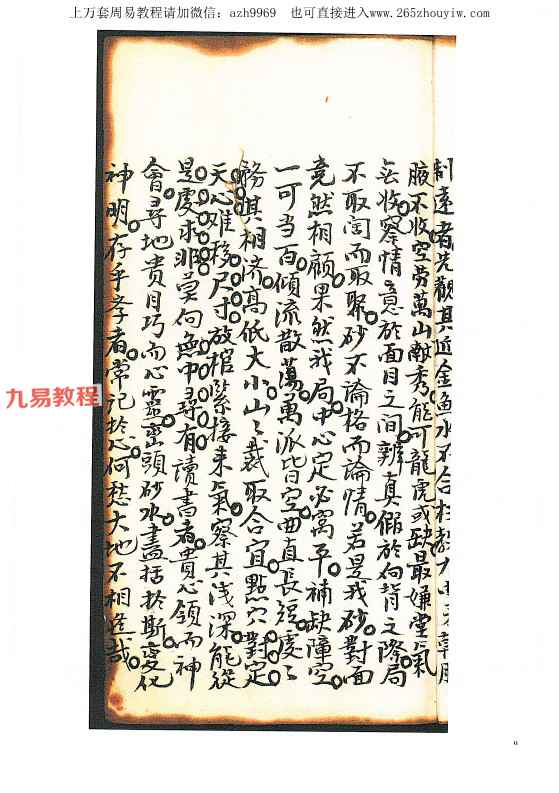 上万套周易教程请加微信：azh9969 也可直接进入www.265zhouyiw.com
制遠者先觀其近金魚水不合
腋不收空勞萬山献秀能可龍虎或缺最嫌堂氣
無收察情意於面目之間辨真假於向背之際局
不取闊而取聚砂不論格而論情若是我砂對面
竟然相顧果然我局中心定必窩平補缺障空
一可当百傾流散蕩萬派皆空曲直長短處〻
務其相济高低大小山〻裁取合宜點穴對定
天心难移尺寸放棺緊接来氣察其浅深能從
是處求非莫向無中尋有讀書者貴心領而神
會尋地貴目巧而心靈巒頭砂水盡括於斯變化
神明存乎孝者常记於心何愁大地不相逢哉
九易教程